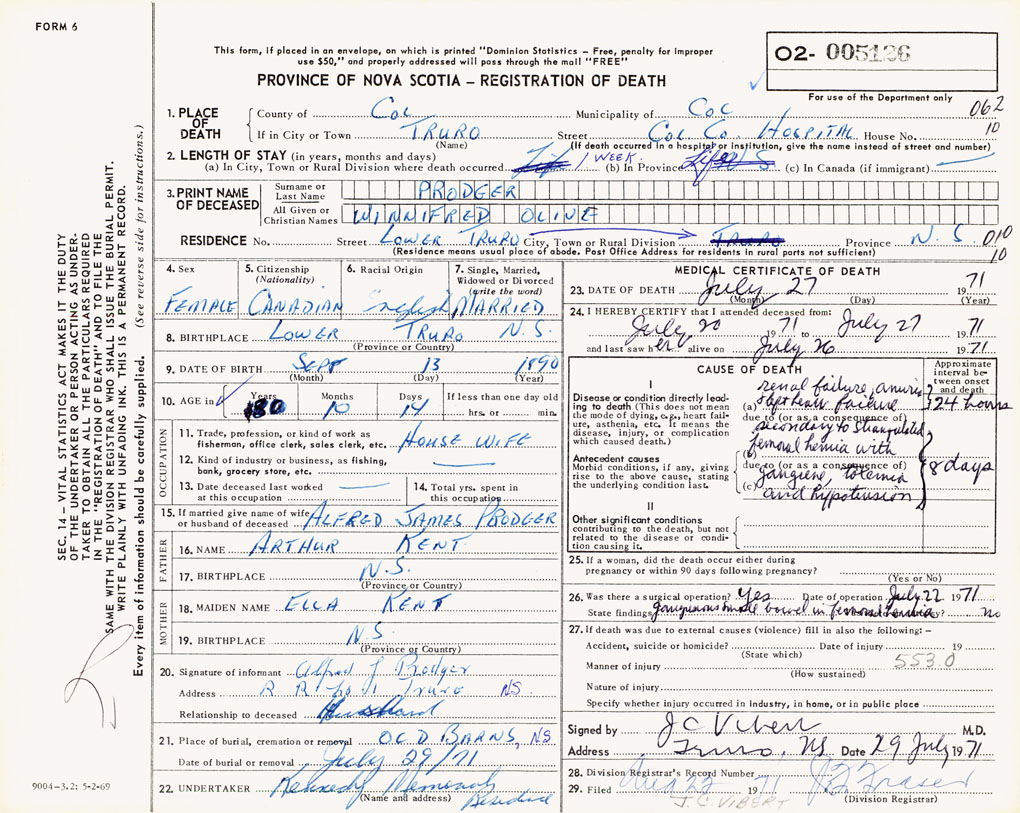 FORM 6
This form, if placed in an envelope, on which is printed "Dominion Statistics – Free, penalty for improper
use $50," and properly addressed will pass through the mail "FREE"
PROVINCE OF NOVA SCOTIA – REGISTRATION OF DEATH
02- 005126
For use of the Department only
062
10
1. PLACE OF DEATH
County of Col Municipality of Col
If in City or Town TRURO Street Col. Co. Hospital House No.
(Name) (If death occurred in a hospital or institution, give the name instead of street and number)
2. LENGTH OF STAY (in years, months and days)
(a) In City, Town or Rural Division where death occurred Life 1 WEEK. (b) In Province Life (c) In Canada (if immigrant)
3. PRINT NAME OF DECEASED
Surname or Last Name PRODGER
All Given or Christian Names WINNIFRED OLIVE
RESIDENCE No. Street LOWER TRURO City, Town or Rural Division Truro Province N.S. 010
10
(Residence means usual place of abode. Post Office Address for residents in rural parts not sufficient)
4. Sex
FEMALE
5. Citizenship
(Nationality)
CANADIAN
6. Racial Origin
English
7. Single, Married,
Widowed or Divorced
(write the word)
MARRIED
8. BIRTHPLACE LOWER TRURO N.S.
(Province or Country)
9. DATE OF BIRTH SEPT 13 1890
(Month) (Day) (Year)
10. AGE in Years 80 Months 10 Days 14 If less than one day old
hrs. or min.
OCCUPATION
11. Trade, profession, or kind of work as
fisherman, office clerk, sales clerk, etc. HOUSE WIFE
12. Kind of industry or business, as fishing,
bank, grocery store, etc.
13. Date deceased last worked
at this occupation
14. Total yrs. spent in
this occupation
15. If married give name of wife
or husband of deceased ALFRED JAMES PRODGER
FATHER
16. NAME ARTHUR KENT
17. BIRTHPLACE N.S.
(Province or Country)
MOTHER
18. MAIDEN NAME ELLA KENT
19. BIRTHPLACE N.S.
(Province or Country)
20. Signature of informant Alfred J Prodger
Address R R No 1 Truro NS.
Relationship to deceased Husband
21. Place of burial, cremation or removal OLD BARNS, NS
Date of burial or removal July 29/71
22. UNDERTAKER Kennedy Memorial
(Name and address)
MEDICAL CERTIFICATE OF DEATH
23. DATE OF DEATH July 27 1971
(Month) (Day) (Year)
24. I HEREBY CERTIFY that I attended deceased from:
July 20 1971 to July 27 1971
and last saw her alive on July 26 1971
CAUSE OF DEATH
Approximate
interval be-
tween onset
and death
I
Disease or condition directly lead-
ing to death (This does not mean
the mode of dying, e.g., heart fail-
ure, asthenia, etc. It means the
disease, injury, or complication
which caused death.)
renal failure, anuria
(a) heart failure 24 hours
due to (or as a consequence of)
secondary to strangulated
(b) femoral hernia with
Antecedent causes
Morbid conditions, if any, giving
rise to the above cause, stating
the underlying condition last.
due to (or as a consequence of)
gangrene, toxemia
(c) and hypotension
8 days
II
Other significant conditions
contributing to the death, but not
related to the disease or condi-
tion causing it.
25. If a woman, did the death occur either during
pregnancy or within 90 days following pregnancy?
(Yes or No)
26. Was there a surgical operation? Yes Date of operation July 22 1971
State findings gangrenous small bowel in femoral hernia ? no
27. If death was due to external causes (violence) fill in also the following: –
Accident, suicide or homicide? Date of injury 19
(State which)
553.0
Manner of injury
(How sustained)
Nature of injury
Specify whether injury occurred in industry, in home, or in public place
Signed by J C Vibert M.D.
Address Truro, NS Date 29 July 1971
28. Division Registrar's Record Number
29. Filed Aug 23 1971 Fraser
(Division Registrar)
J.C. VIBERT
SEC. 14 – VITAL STATISTICS ACT MAKES IT THE DUTY
OF THE UNDERTAKER OR PERSON ACTING AS UNDER-
TAKER TO OBTAIN ALL THE PARTICULARS REQUIRED
IN THE "REGISTRATION OF DEATH" AND TO FILE THE
SAME WITH THE DIVISION REGISTRAR WHO SHALL ISSUE THE BURIAL PERMIT.
WRITE PLAINLY WITH UNFADING INK. THIS IS A PERMANENT RECORD.
Every item of information should be carefully supplied. (See reverse side for instructions.)
9004-3.2: 5-2-69